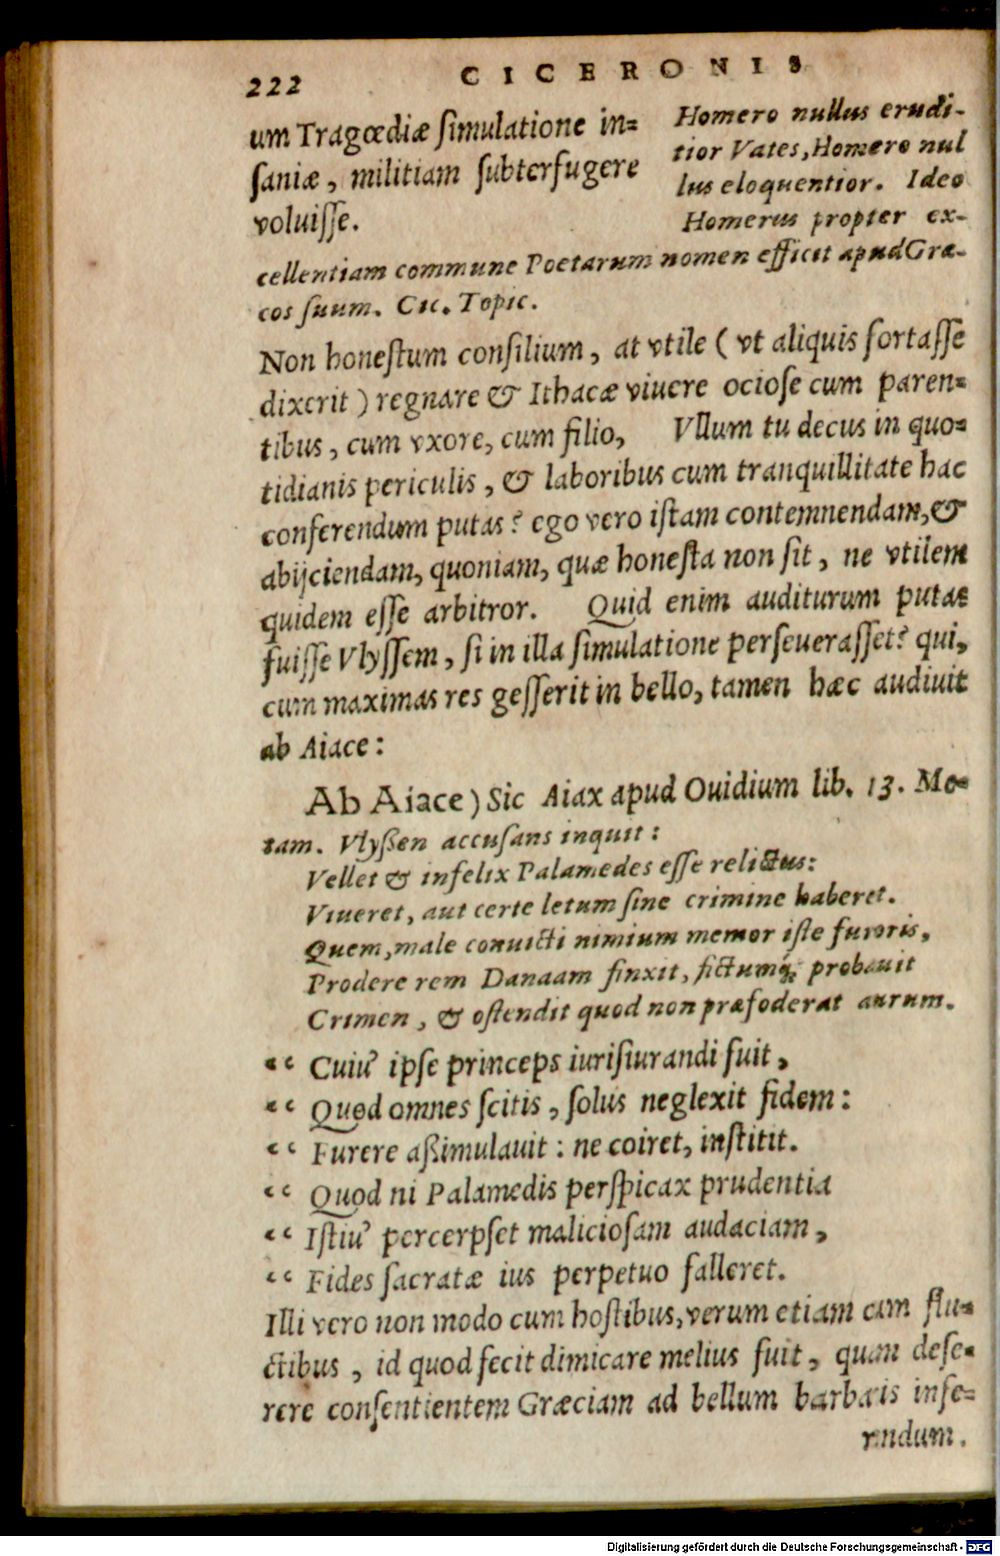 222 CICERONIS
um Tragœdiæ ſimulatione in=
ſaniæ, militiam ſubterfugere
voluiſſe.
Homero nullus erudi-
tior Vates, Homero nul
lus eloquentior. Ideo
Homerus propter ex-
cellentiam commune Poetarum nomen efficit apud Græ-
cos ſuum. Cic. Topic.
Non honeſtum conſilium, at vtile (vt aliquis fortaſſe
dixerit) regnare & Ithacæ viuere ocioſe cum paren=
tibus, cum vxore, cum filio, Vllum tu decus in quo=
tidianis periculis, & laboribus cum tranquillitate hac
conferendum putas? ego vero iſtam contemnendam, &
abijciendam, quoniam, quæ honeſta non ſit, ne vtilem
quidem eſſe arbitror. Quid enim auditurum putas
fuiſſe Vlyſſem, ſi in illa ſimulatione perſeueraſſet? qui,
cum maximas res geſſerit in bello, tamen hæc audiuit
ab Aiace:
Ab Aiace) Sic Aiax apud Ouidium lib. 13. Me=
tam. Vlyßen accuſans inquit:
Vellet & infelix Palamedes eſſe relictus:
Viueret, aut certe letum ſine crimine haberet.
Quem, male conuicti nimium memor iſte furoris,
Prodere rem Danaam finxit, fictumq́; probauit
Crimen, & oſtendit quod non præfoderat aurum.
“ Cuiu’ ipſe princeps iuriſiurandi fuit,
“ Quod omnes ſcitis, ſolus neglexit fidem:
“ Furere aßimulauit: ne coiret, inſtitit.
“ Quod ni Palamedis perſpicax prudentia
“ Iſtiu’ percerpſet malicioſam audaciam,
“ Fides ſacratæ ius perpetuo falleret.
Illi vero non modo cum hoſtibus, verum etiam cum flu=
ctibus, id quod fecit dimicare melius fuit, quam deſe=
rere conſentientem Græciam ad bellum barbaris infe=
rendum.
Digitalisierung gefördert durch die Deutsche Forschungsgemeinschaft - DFG